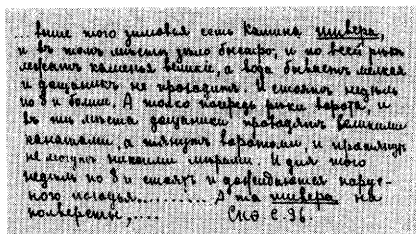 ... выше того зимовья есть камина шивера,
и въ томъ мѣстѣ зѣло быстро, и по всей рѣкѣ
лежатъ каменья велики, а вода бываетъ мелкая
и дощаникъ не проводитъ. И стоятъ недѣль
по 8 и болши. А толко посредь рѣки ворота, и
въ тѣ мѣста дощаники проводятъ великими
канатами, а тянутъ воротами, и проитить
не могутъ никоими мѣрами. И для того
недѣль по 8 и стоятъ и дожидаются парус-
ного погодья.......... А та шивера на
полверсты,.... Скө с. 96.